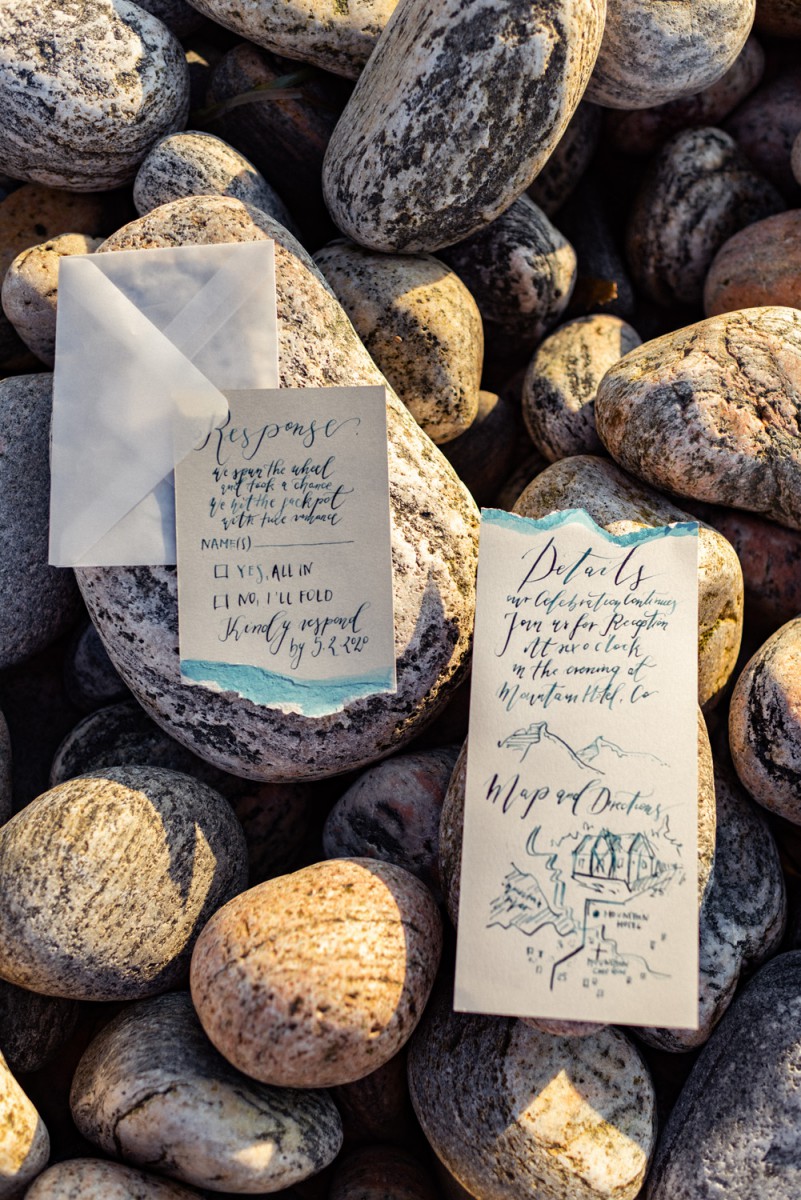 Response
we spun the wheel
and took a chance
We hit the jackpot
with true romance
NAME(S)
YES, ALL IN
NO, I'LL FOLD
Kindly respond
by 5.2.2020
Details
our Celebration Continues
Join us for Reception
At six o'clock
in the evening at
Mountain Hotel, Co
Map and Directions
MOUNTAIN
HOTEL
MOUNTAIN